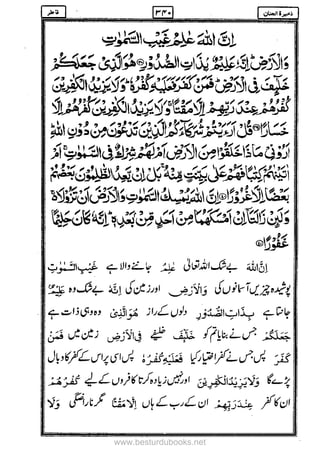 ذخیرة الجنان ۳۴۰ فاطر
اِنَّ اللّٰهَ عٰلِمُ غَیْبِ السَّمٰوٰتِ
وَالْاَرْضِ ؕ اِنَّهٗ عَلِیْمٌۢ بِذَاتِ الصُّدُوْرِ ۝ هُوَ الَّذِیْ جَعَلَكُمْ
خَلٰٓئِفَ فِی الْاَرْضِ ؕ فَمَنْ كَفَرَ فَعَلَیْهِ كُفْرُهٗ ؕ وَلَا یَزِیْدُ الْكٰفِرِیْنَ
كُفْرُهُمْ عِنْدَ رَبِّهِمْ اِلَّا مَقْتًا ۚ وَلَا یَزِیْدُ الْكٰفِرِیْنَ كُفْرُهُمْ اِلَّا
خَسَارًا ۝ قُلْ اَرَءَیْتُمْ شُرَكَآءَكُمُ الَّذِیْنَ تَدْعُوْنَ مِنْ دُوْنِ اللّٰهِ ؕ
اَرُوْنِیْ مَاذَا خَلَقُوْا مِنَ الْاَرْضِ اَمْ لَهُمْ شِرْكٌ فِی السَّمٰوٰتِ ۚ اَمْ
اٰتَیْنٰهُمْ كِتٰبًا فَهُمْ عَلٰی بَیِّنَتٍ مِّنْهُ ۚ بَلْ اِنْ یَّعِدُ الظّٰلِمُوْنَ بَعْضُهُمْ
بَعْضًا اِلَّا غُرُوْرًا ۝ اِنَّ اللّٰهَ یُمْسِكُ السَّمٰوٰتِ وَالْاَرْضَ اَنْ تَزُوْلَا ۚ
وَلَئِنْ زَالَتَاۤ اِنْ اَمْسَكَهُمَا مِنْ اَحَدٍ مِّنْۢ بَعْدِهٖ ؕ اِنَّهٗ كَانَ حَلِیْمًا
غَفُوْرًا ۝
اِنَّ اللّٰهَ بے شک اللہ تعالیٰ عٰلِمُ جاننے والا ہے غَیْبِ السَّمٰوٰتِ
پوشیدہ چیزیں آسمانوں کی وَالْاَرْضِ اور زمین کی اِنَّهٗ بے شک وہ عَلِیْمٌۢ
جانتا ہے بِذَاتِ الصُّدُوْرِ دلوں کے راز هُوَ الَّذِیْ وہ وہی ذات ہے
جَعَلَكُمْ جس نے بنایا تم کو خَلٰٓئِفَ خلیفے فِی الْاَرْضِ زمین میں فَمَنْ
كَفَرَ پس جس نے کفر اختیار کیا فَعَلَیْهِ كُفْرُهٗ پس اسی پر اس کے کفر کا وبال
پڑے گا وَلَا یَزِیْدُ الْكٰفِرِیْنَ اور نہیں زیادہ کرتا کافروں کے لیے كُفْرُهُمْ
ان کا کفر عِنْدَ رَبِّهِمْ ان کے رب کے ہاں اِلَّا مَقْتًا مگر ناراضگی وَلَا
www.besturdubooks.net